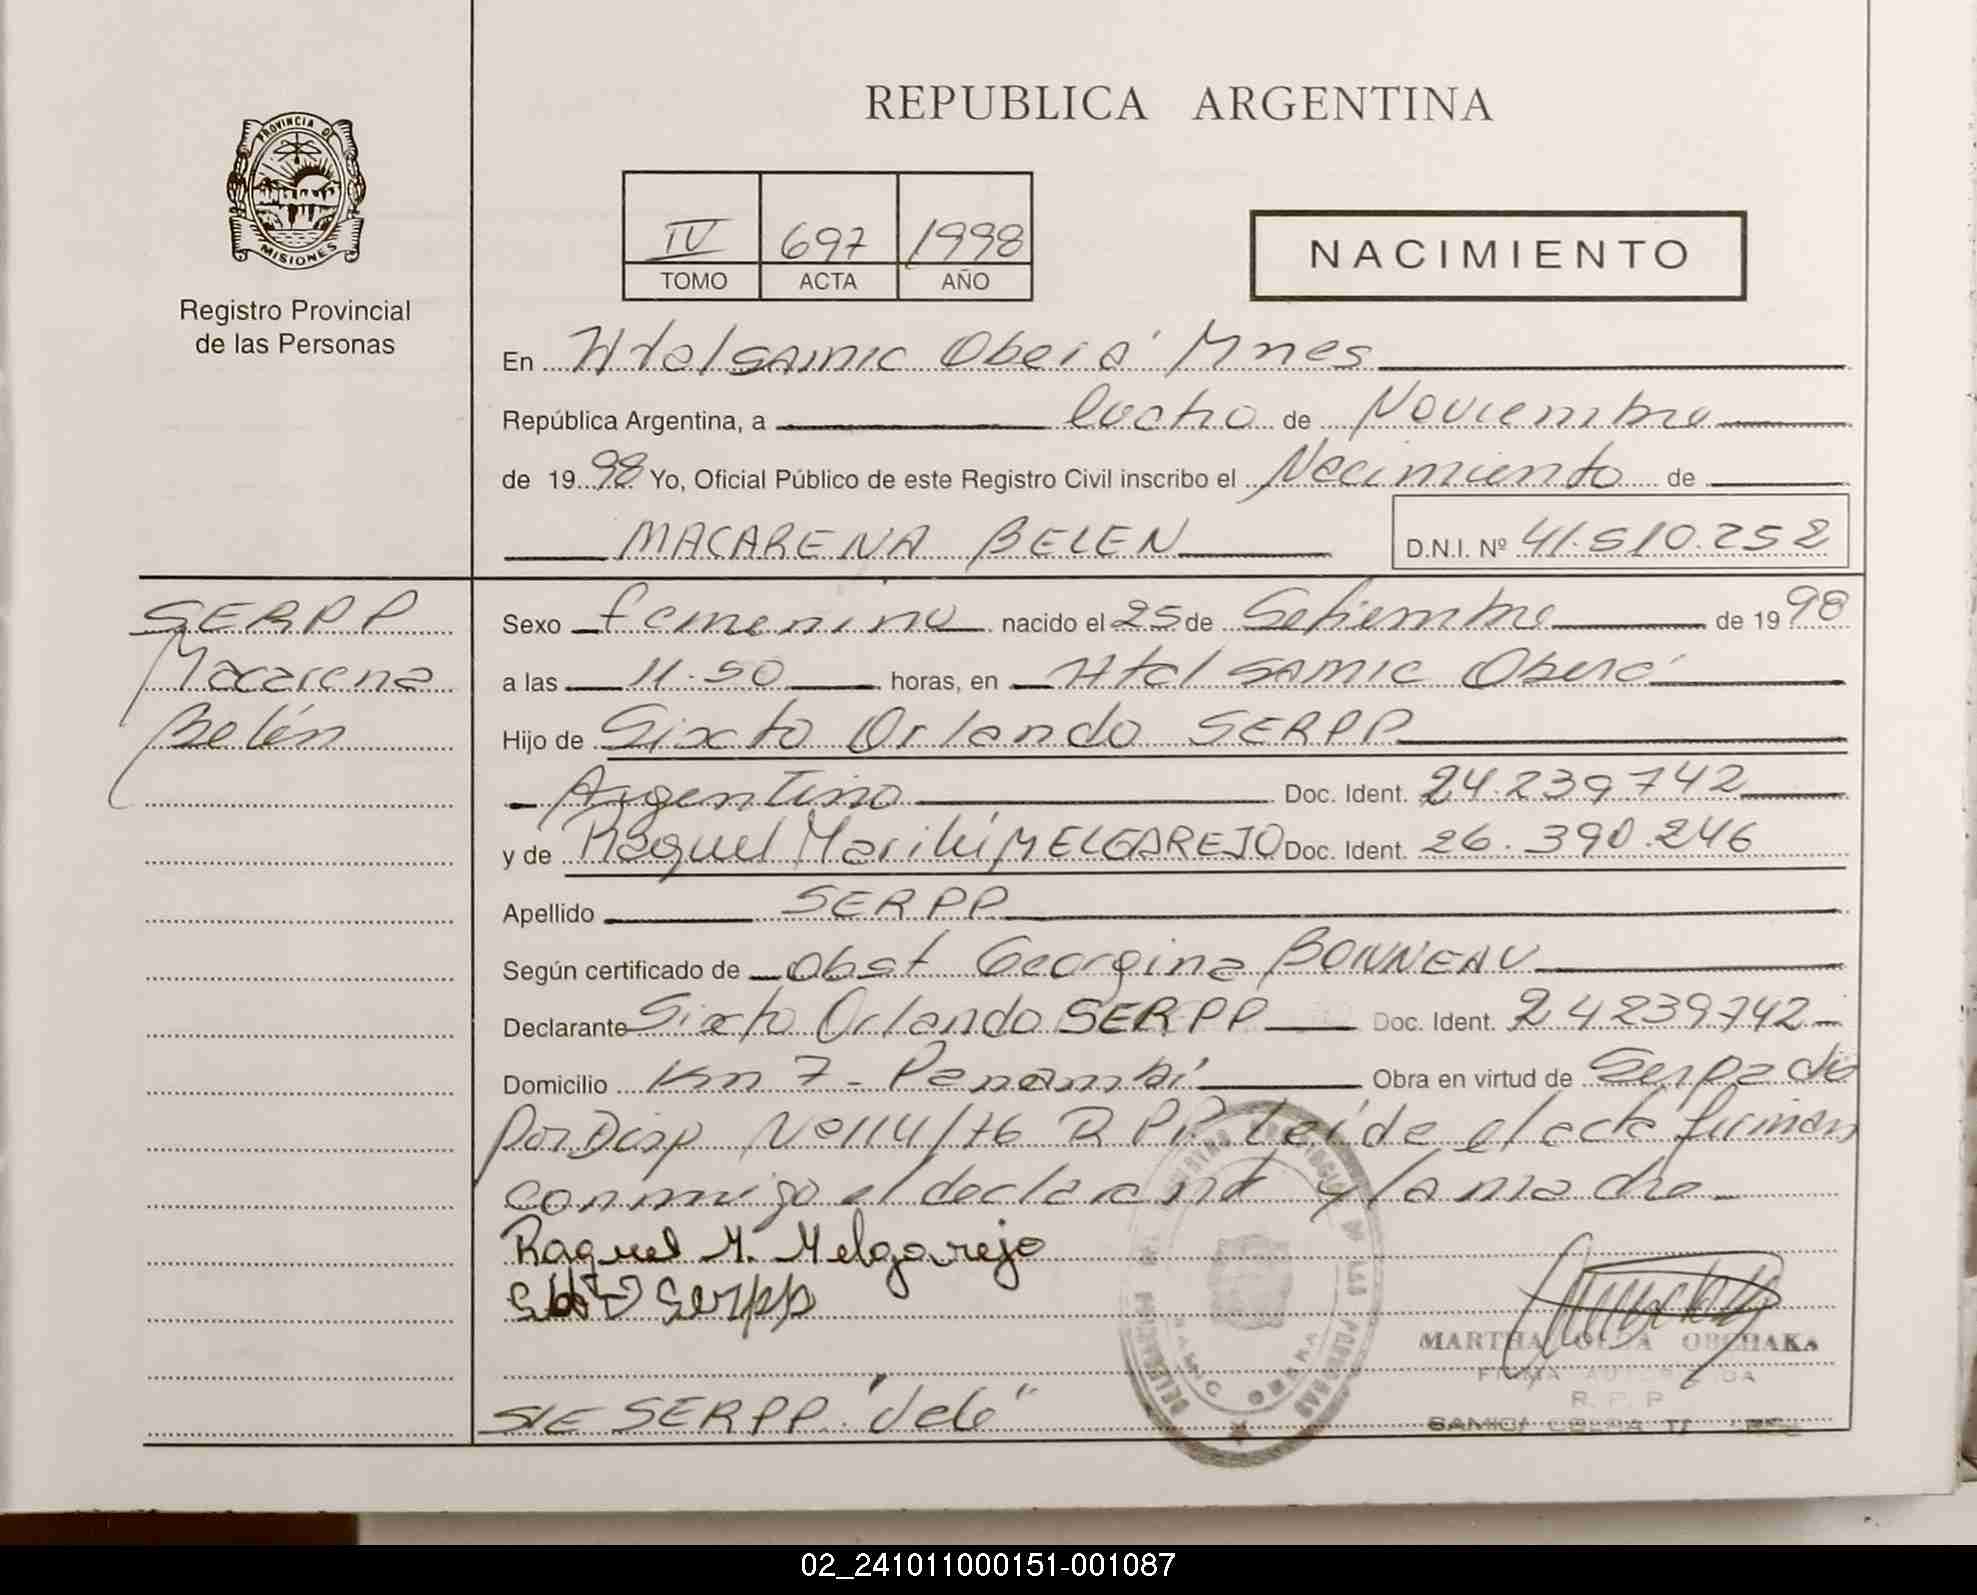 REPUBLICA ARGENTINA
PROVINCIA DE
MISIONES
Registro Provincial
de las Personas
IV 697 1998
TOMO ACTA AÑO
NACIMIENTO
En Htal SAMIC Oberá Mnes
República Argentina, a ocho de Noviembre
de 19 98 Yo, Oficial Público de este Registro Civil inscribo el Nacimiento de
MACARENA BELEN D.N.I. Nº 41.510.252
SERPP
Macarena
Belén
Sexo femenino nacido el 25 de Setiembre de 19 98
a las 11.50 horas, en Htal SAMIC Oberá
Hijo de Sixto Orlando SERPP
Argentino Doc. Ident. 24.239.742
y de Raquel Marilú MELGAREJO Doc. Ident. 26.390.246
Apellido SERPP
Según certificado de Obst Georgina BONNEAU
Declarante Sixto Orlando SERPP Doc. Ident. 24239742
Domicilio Km 7 - Panambí Obra en virtud de
por Disp Nº 114/76 R P P Leída el acta firman
conmigo el declarante y la madre
Raquel M. Melgarejo
Serpp
MARTHA OLGA OBCHAKA
FIRMA AUTORIZADA
R. P. P
S/E SERPP "Vale"
02_241011000151-001087